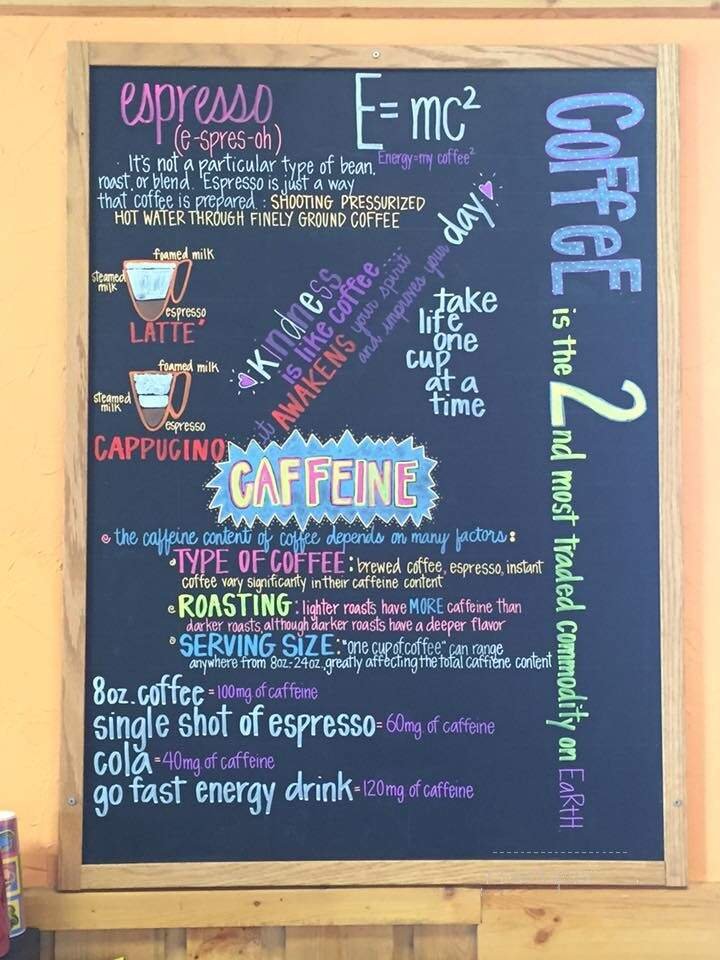 espresso
(e-spres-oh)
· It's not a particular type of bean,
roast, or blend. Espresso is just a way
that coffee is prepared.: SHOOTING PRESSURIZED
HOT WATER THROUGH FINELY GROUND COFFEE
E=mc²
Energy=my coffee²
foamed milk
steamed
milk
espresso
LATTE
foamed milk
steamed
milk
espresso
CAPPUCINO
kindness
is like coffee....
it AWAKENS your spirit
and improves your day
take
life
one
cup
at a
time
COFFEE is the 2nd most traded commodity on EaRtH
CAFFEINE
the caffeine content of coffee depends on many factors:
TYPE OF COFFEE: brewed coffee, espresso, instant
coffee vary significantly in their caffeine content
ROASTING: lighter roasts have MORE caffeine than
darker roasts, although darker roasts have a deeper flavor
SERVING SIZE: "one cup of coffee" can range
anywhere from 8oz-24oz, greatly affecting the total caffiene content
8oz. coffee=100mg. of caffeine
single shot of espresso=60mg. of caffeine
cola=40mg. of caffeine
go fast energy drink=120mg of caffeine